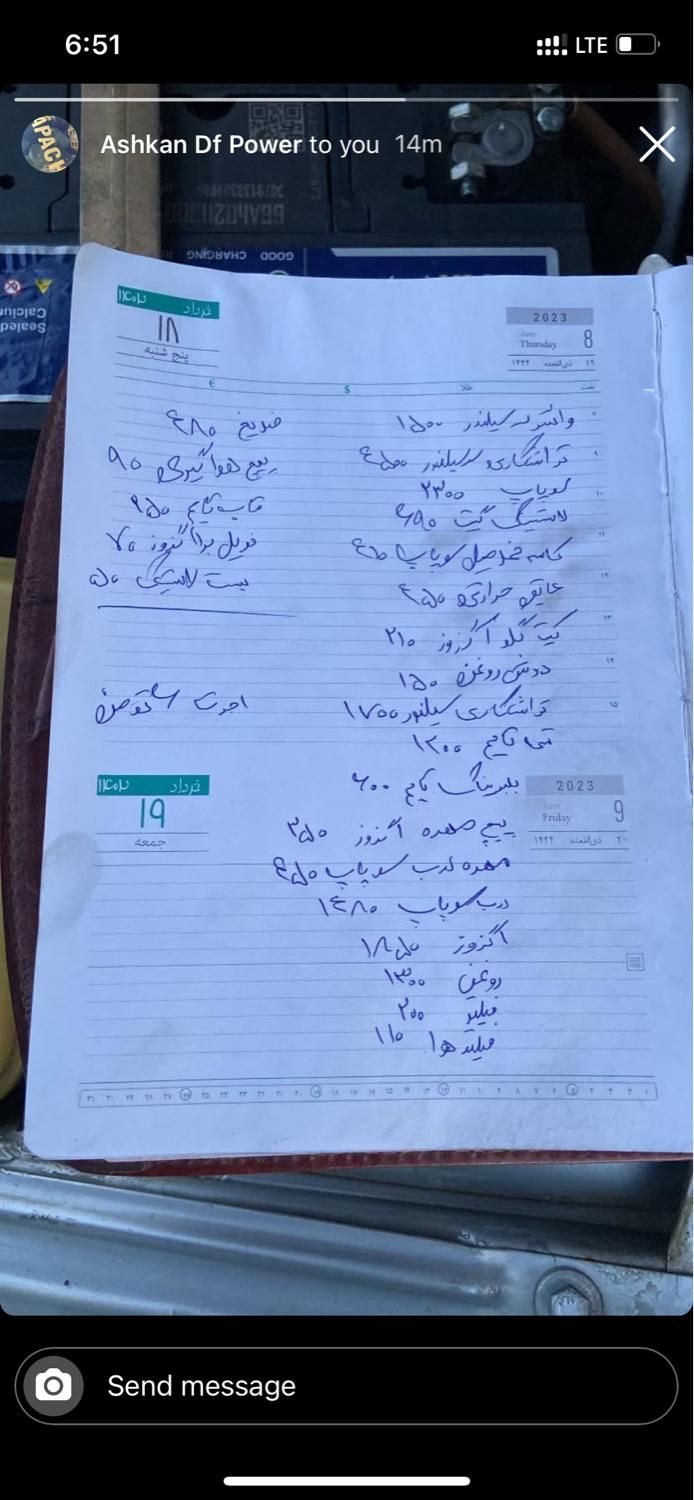 6:51
LTE
Ashkan Df Power to you 14m
GOOD CHARGING
Sealed
Calcium
خرداد ۱۴۰۲
۱۸
پنج شنبه
2023
June
Thursday 8
۱۹ ذی‌القعده ۱۴۴۴
نفت طلا $ €
واشر سرسیلندر ۱۵۰۰
تراشکاری سرسیلندر ۴۵۰۰
سوپاپ ۲۳۰۰
لاستیک گیت ۶۹۰
کاسه نمد میل سوپاپ
عایق حرارتی ۴۵۰
کیت گلو اگزوز ۲۱۰
دوش روغن ۱۵۰
تراشکاری سیلندر ۱۷۰۰
تایم ۱۲۰۰
بلبرینگ تایم ۶۰۰
پیچ مهره اگزوز ۳۵۰
مهره درب سوپاپ ۴۵۰
درب سوپاپ ۱۴۸۰
اگزوز ۱۸۵۰
روغن ۱۳۰۰
فیلتر ۲۰۰
فیلتر هوا ۱۱۰
ضدیخ ۴۸۰
پیچ هواگیری ۹۰
قاب تایم ۹۵۰
اگزوز ۷۰
بست لاستیکی ۵۰
اجرت
خرداد ۱۴۰۲
۱۹
جمعه
2023
June
Friday 9
۲۰ ذی‌القعده ۱۴۴۴
Send message